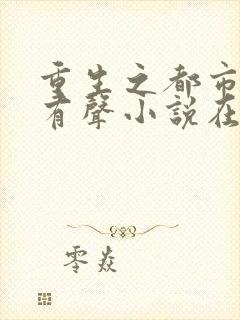 重生之都市
有聲小說在
零焱